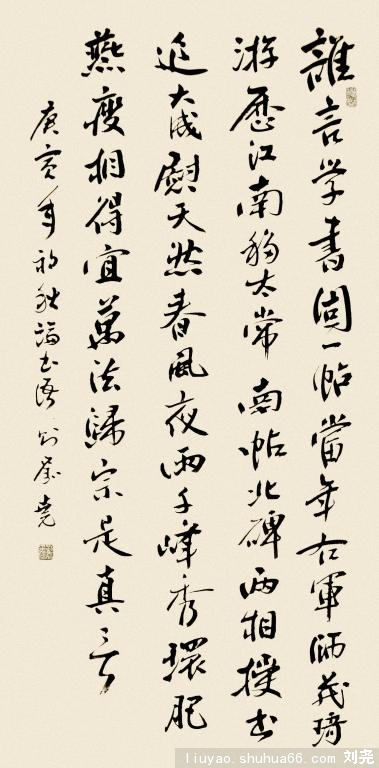 誰言学書固一帖當年右軍师茂琦
游歷江南移太常南帖北碑两相书
追大成慰天然春風夜雨千峰秀環肥
燕瘦相得宜萬法歸宗是真言
庚寅年初秋論书语 劉尧
liuyao.shuhua66.com 刘尧